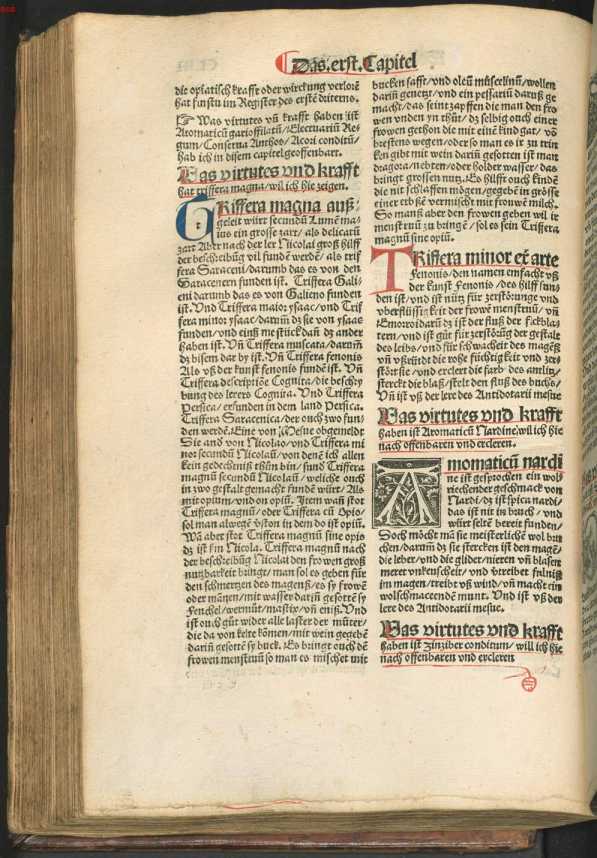 Das. erst. Capitel
die oplatisch krafft oder wirckung verlorē
hat funstu im Register des erstē driterns.
Was virtutes vñ krafft haben ist
Aromaticū gariofilatū / Electuariū Re⸗
gum / Conserua Anthos / Acori conditū /
hab ich in disem capitel geoffenbart.
Was virtutes vnd krafft
hat triffera magna / wil ich hie zeigen.
TRiffera magna auß⸗
geleit würt secundū Lumē ma⸗
ius ein grosse zart / als delicatū
zart Aber nach der ler Nicolai groß hilff
der beschreibūg vil fundē werdē / als trif
fera Saraceni / darumb das es von den
Saracenern funden ist. Triffera Gali⸗
eni darumb das es von Galieno funden
ist. Vnd Triffera maior ysaac / vnd Trif
fera minor ysaac / darum dz sie von ysaac
funden / vnd einß me stück dañ dz ander
haben ist. Vñ Triffera muscata / darum
dz bisem dar by ist. Vñ Triffera fenonis
Als vß der kunst fenonis fundē ist. Vñ
Triffera descriptiōe Cognita / die beschry
bung des lerers Cognita. Vnd Triffera
Persica / erfunden in dem land Persica.
Triffera Saracenica / der ouch zwo fun⸗
den werdē. Eine von Mesue obgemeldt
Die and von Nicolao / vnd Triffera mi
nor secundū Nicolaū / von denē ich allen
kein gedechteniß thůn bin / sund Triffera
magnū secundū Nicolaū / weliche ouch
in zwo gestalt gemacht fundē würt / Als
mit opium / vnd on opiū. Item wañ stot
Triffera magnū / oder Triffera cū Opio /
sol man alwegē vston in dem do ist opiū.
Wā aber stot Triffera magnū sine opio
dz ist sin Nicola. Triffera magnū nach
der beschribūg Nicolai den frowen groß
nutzbarkeit bringt / man sol es geben für
den schmertzen des magenß / es sy frowē
oder mañen / mit wasser darin gesottē sy
Fenchel / wermůt / mastix / vñ eniß. Vnd
ist ouch gůt wider alle laster der můter /
die da von kelte kōmen / mit wein gegebē
darin gesotē sy buck. Es bringt ouch dē
frowen menstruū so man es mischet mit
bucken safft / vnd oleū muscelinū / wollen
darin genetzt / vnd ein pessariū daruß ge
macht / das seint zapffen die man den fro
wen vnden yn thůt / dz selbig ouch einer
frowen gethon die mit eine kind gat / vō
brestens wegen / oder so man es ir zu trin
ken gibt mit wein darin gesotten ist man
dragora / nebten / oder holder wasser / das
bringt grossen nutz. Es hilfft ouch kindē
die nit schlaffen mögen / gegebē in grösse
einer erbßē vermischt mit frouwē milch.
So manß aber den frowen geben wil ir
menstruū zu bringē / sol es sein Triffera
magnū sine opiū.
TRiffera minor et arte
Fenonis / den namen empfacht vß
der kunst Fenonis / des hilff fun⸗
den ist / vnd ist nütz für zerstörunge vnd
vberflüssigkeit der frowē menstruū / vñ
Emorroidarū dz ist der fluß der ficblat⸗
tern / vnd ist gůt für zerstörūg der gestalt
des leibs / vnd für schwacheit des magēs
vñ vßtrübt die rohe füchtigkeit vnd zer⸗
stört sie / vnd erclert die farb / des antlitz /
sterckt die blaß / stelt den fluß des buchs /
Vñ ist vß der lere des Antidotarii mesue
Was virtutes vnd krafft
haben ist Aromaticū Nardine / wil ich hie
nach offenbaren vnd ercleren.
ARomaticū nardi
ne ist gesprochen ein wol⸗
riechender geschmack von
Nardi / dz ist spica nardi /
das ist nit in bruch / vnd
würt selrē bereit funden /
Doch möcht mā sie meisterlichē wol bru
chen / darum dz sie stercken ist den magē /
die leber / vnd die glider / nieren vñ blasen
meret vnkeuscheit / vnd vtreibet fulniß
im magen / treibt vß wind / vñ macht ein
wolschmacendē munt. Vnd ist vß der
lere des Antidotarii mesue.
Was virtutes vnd krafft
haben ist Zinziber conditum / will ich hie
nach offenbaren vnd ercleren